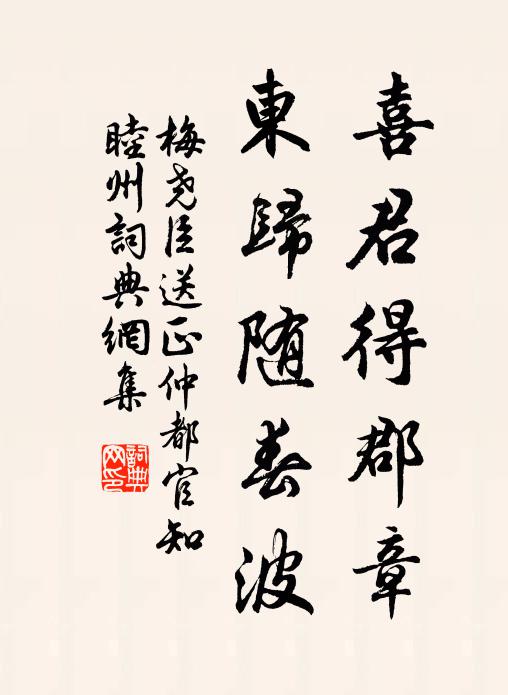 喜君得郡章
東歸随春波
梅尧臣送正仲都官知
睦州詞典網集
詞典
网印